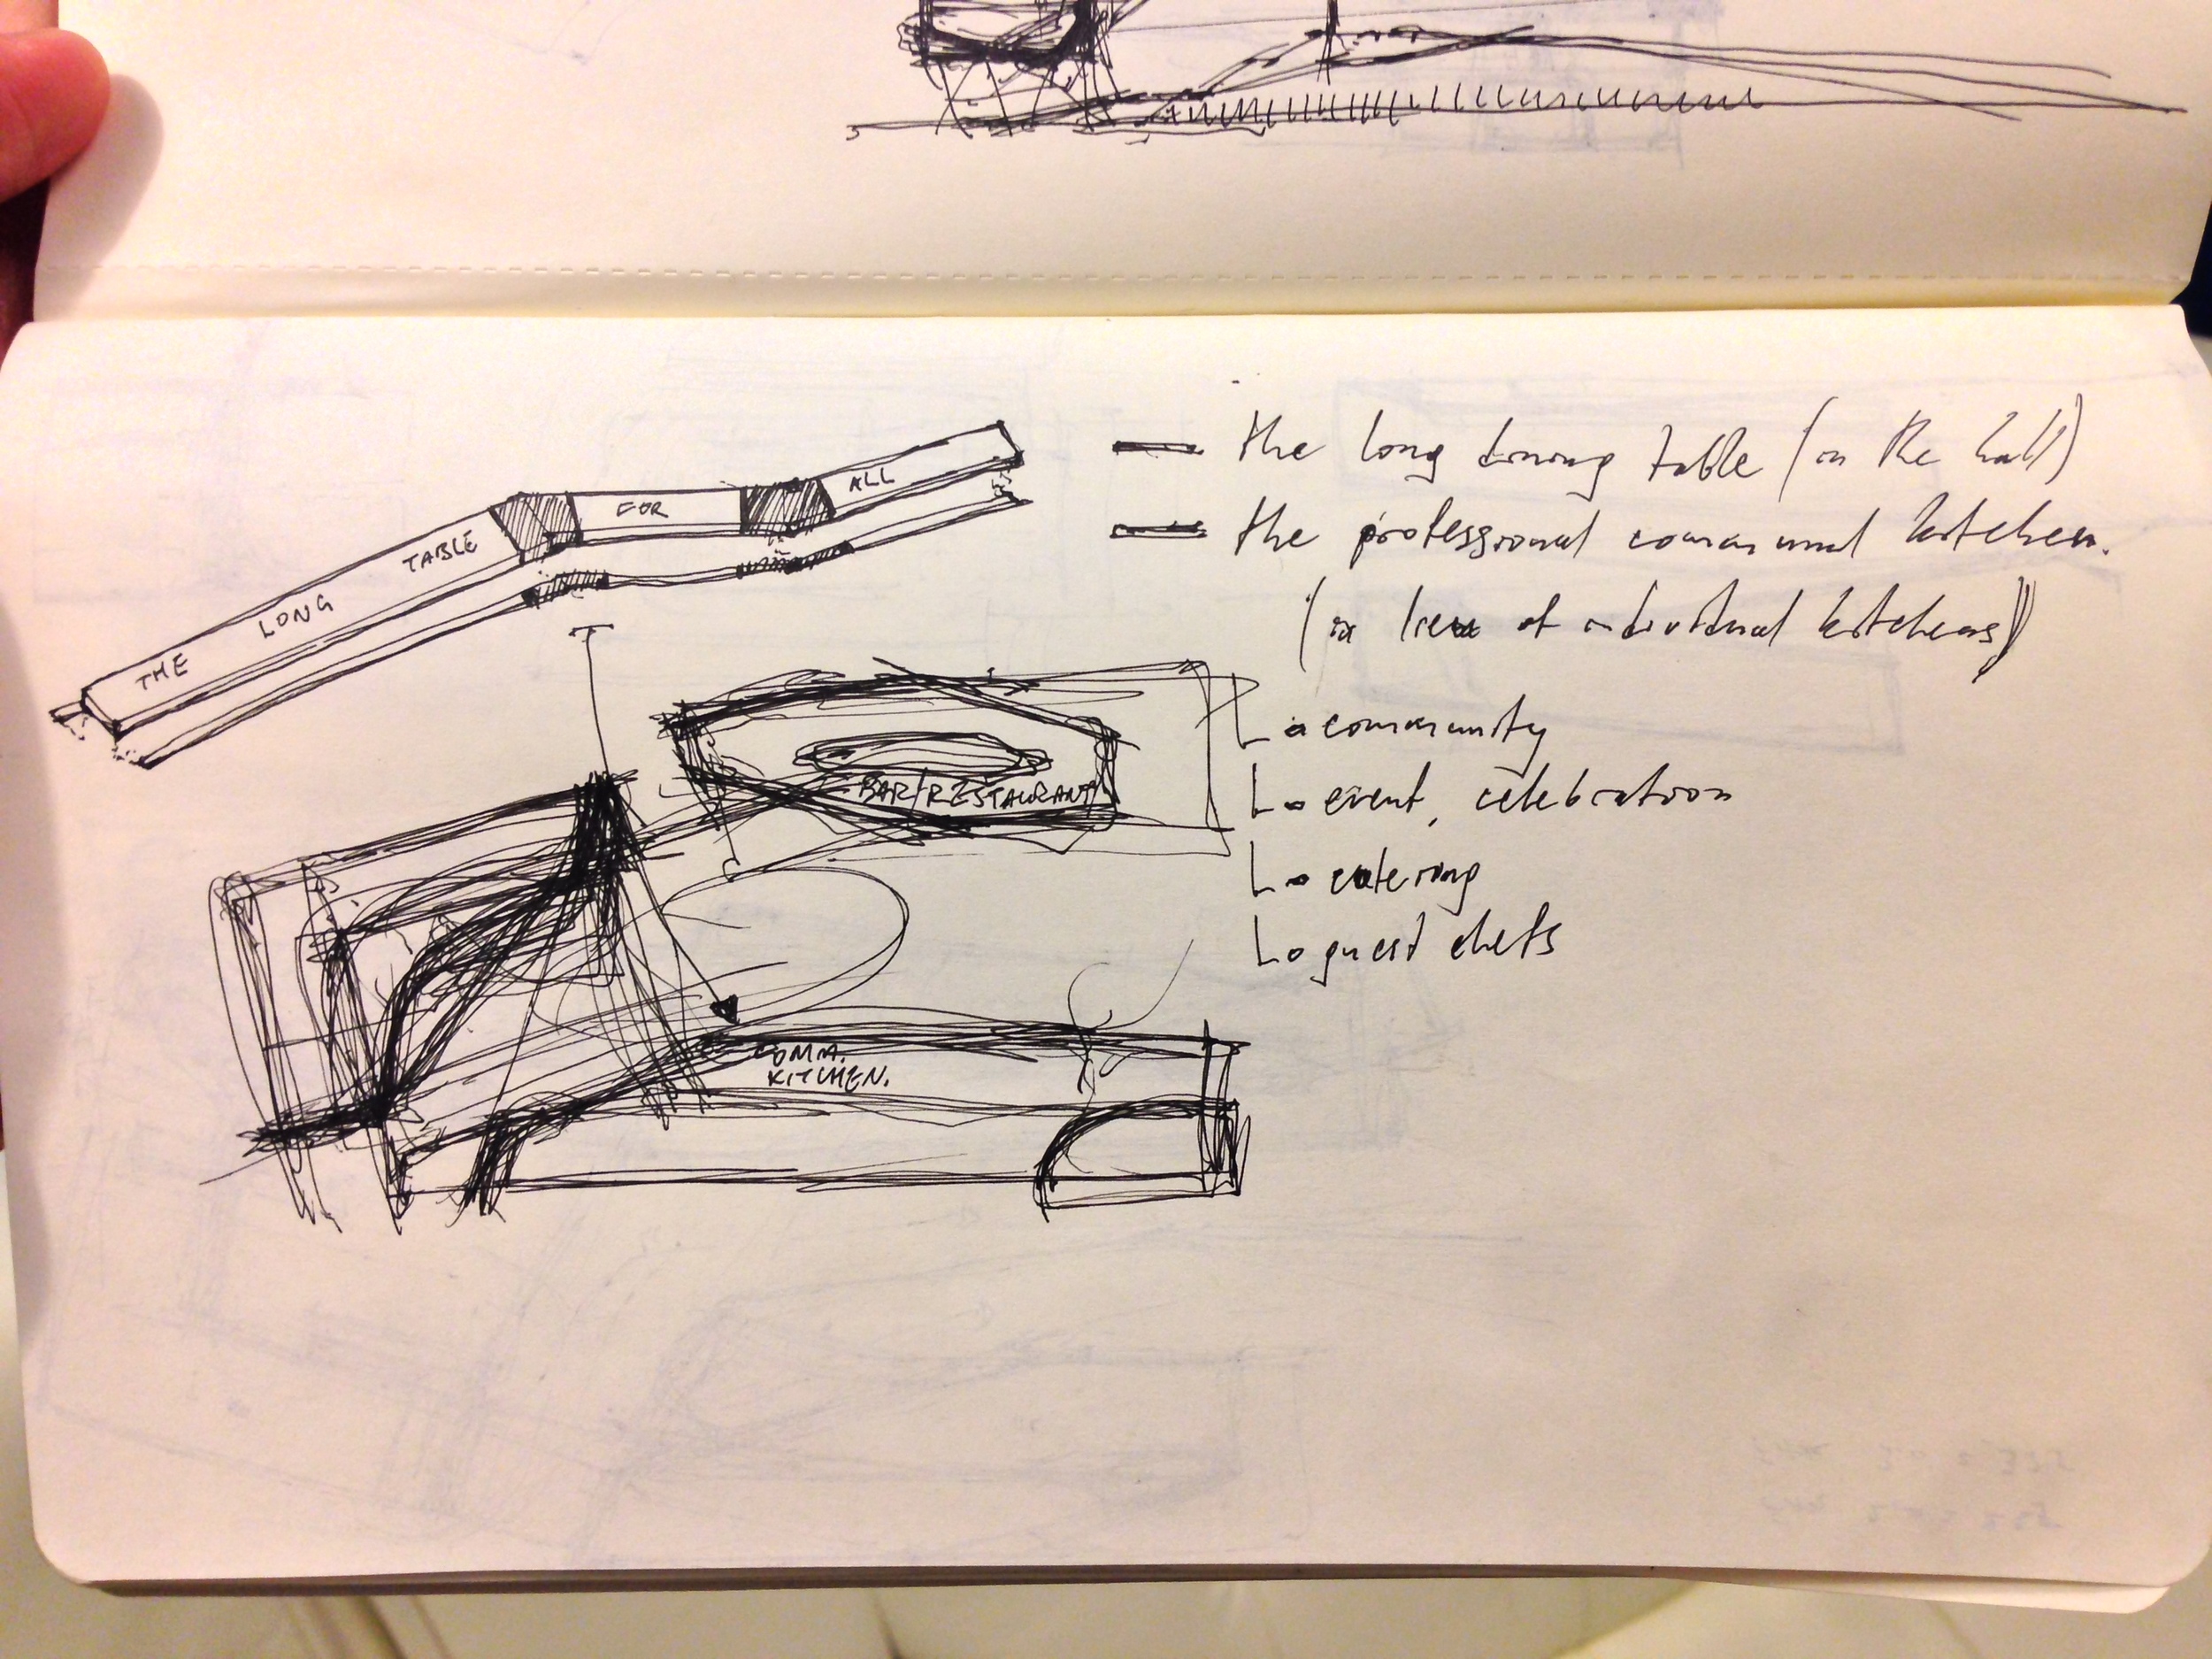 THE LONG TABLE FOR ALL
— the long dining table (in the hall)
— the professional communal kitchen.
(in lieu of individual kitchens)
community
event, celebration
catering
guest chefs
BAR/RESTAURANT
COMM.
KITCHEN.